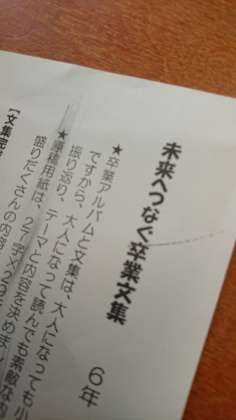 未来へつなぐ卒業文集
6年
★卒業アルバムと文集は、大人になっても小
ですから、大人になって読んでも素敵な内
振り返り、テーマと内容を決めま
★原稿用紙は、27字×23
盛りだくさんの内容
【文集完